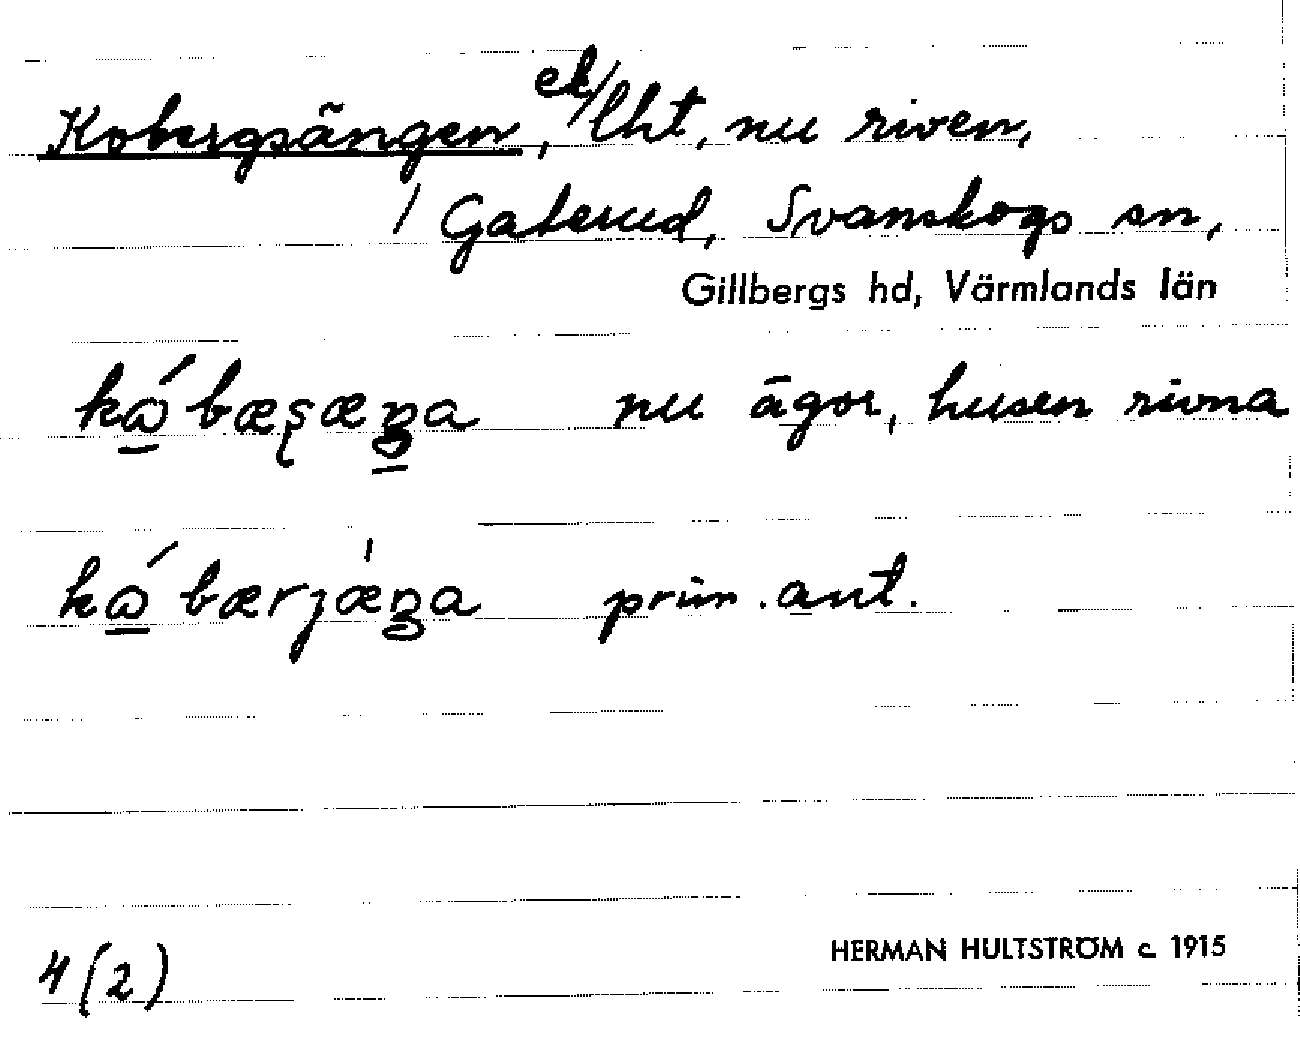 Kobergsängen, ek/lht, nu riven,
/ Gaterud, Svanskogs sn,
Gillbergs hd, Värmlands län
kά̲bæʂæŋa nu ägor, husen rivna
kά̲bærjæ̍ŋa prim. ant.
4(2)
HERMAN HULTSTRÖM c. 1915